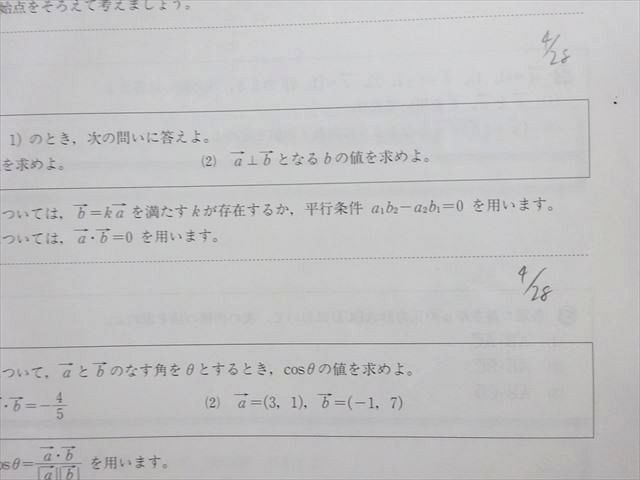 始点をそろえて考えましょう。
4/28
1) のとき，次の問いに答えよ。
を求めよ。 (2) a⃗⊥b⃗となるbの値を求めよ。
ついては，b⃗=ka⃗ を満たすkが存在するか，平行条件 a₁b₂−a₂b₁=0 を用います。
ついては，a⃗・b⃗=0 を用います。
4/28
ついて，a⃗とb⃗のなす角をθとするとき，cosθの値を求めよ。
・b⃗=−4/5 (2) a⃗=(3, 1)，b⃗=(−1, 7)
osθ=a⃗・b⃗/|a⃗||b⃗| を用います。